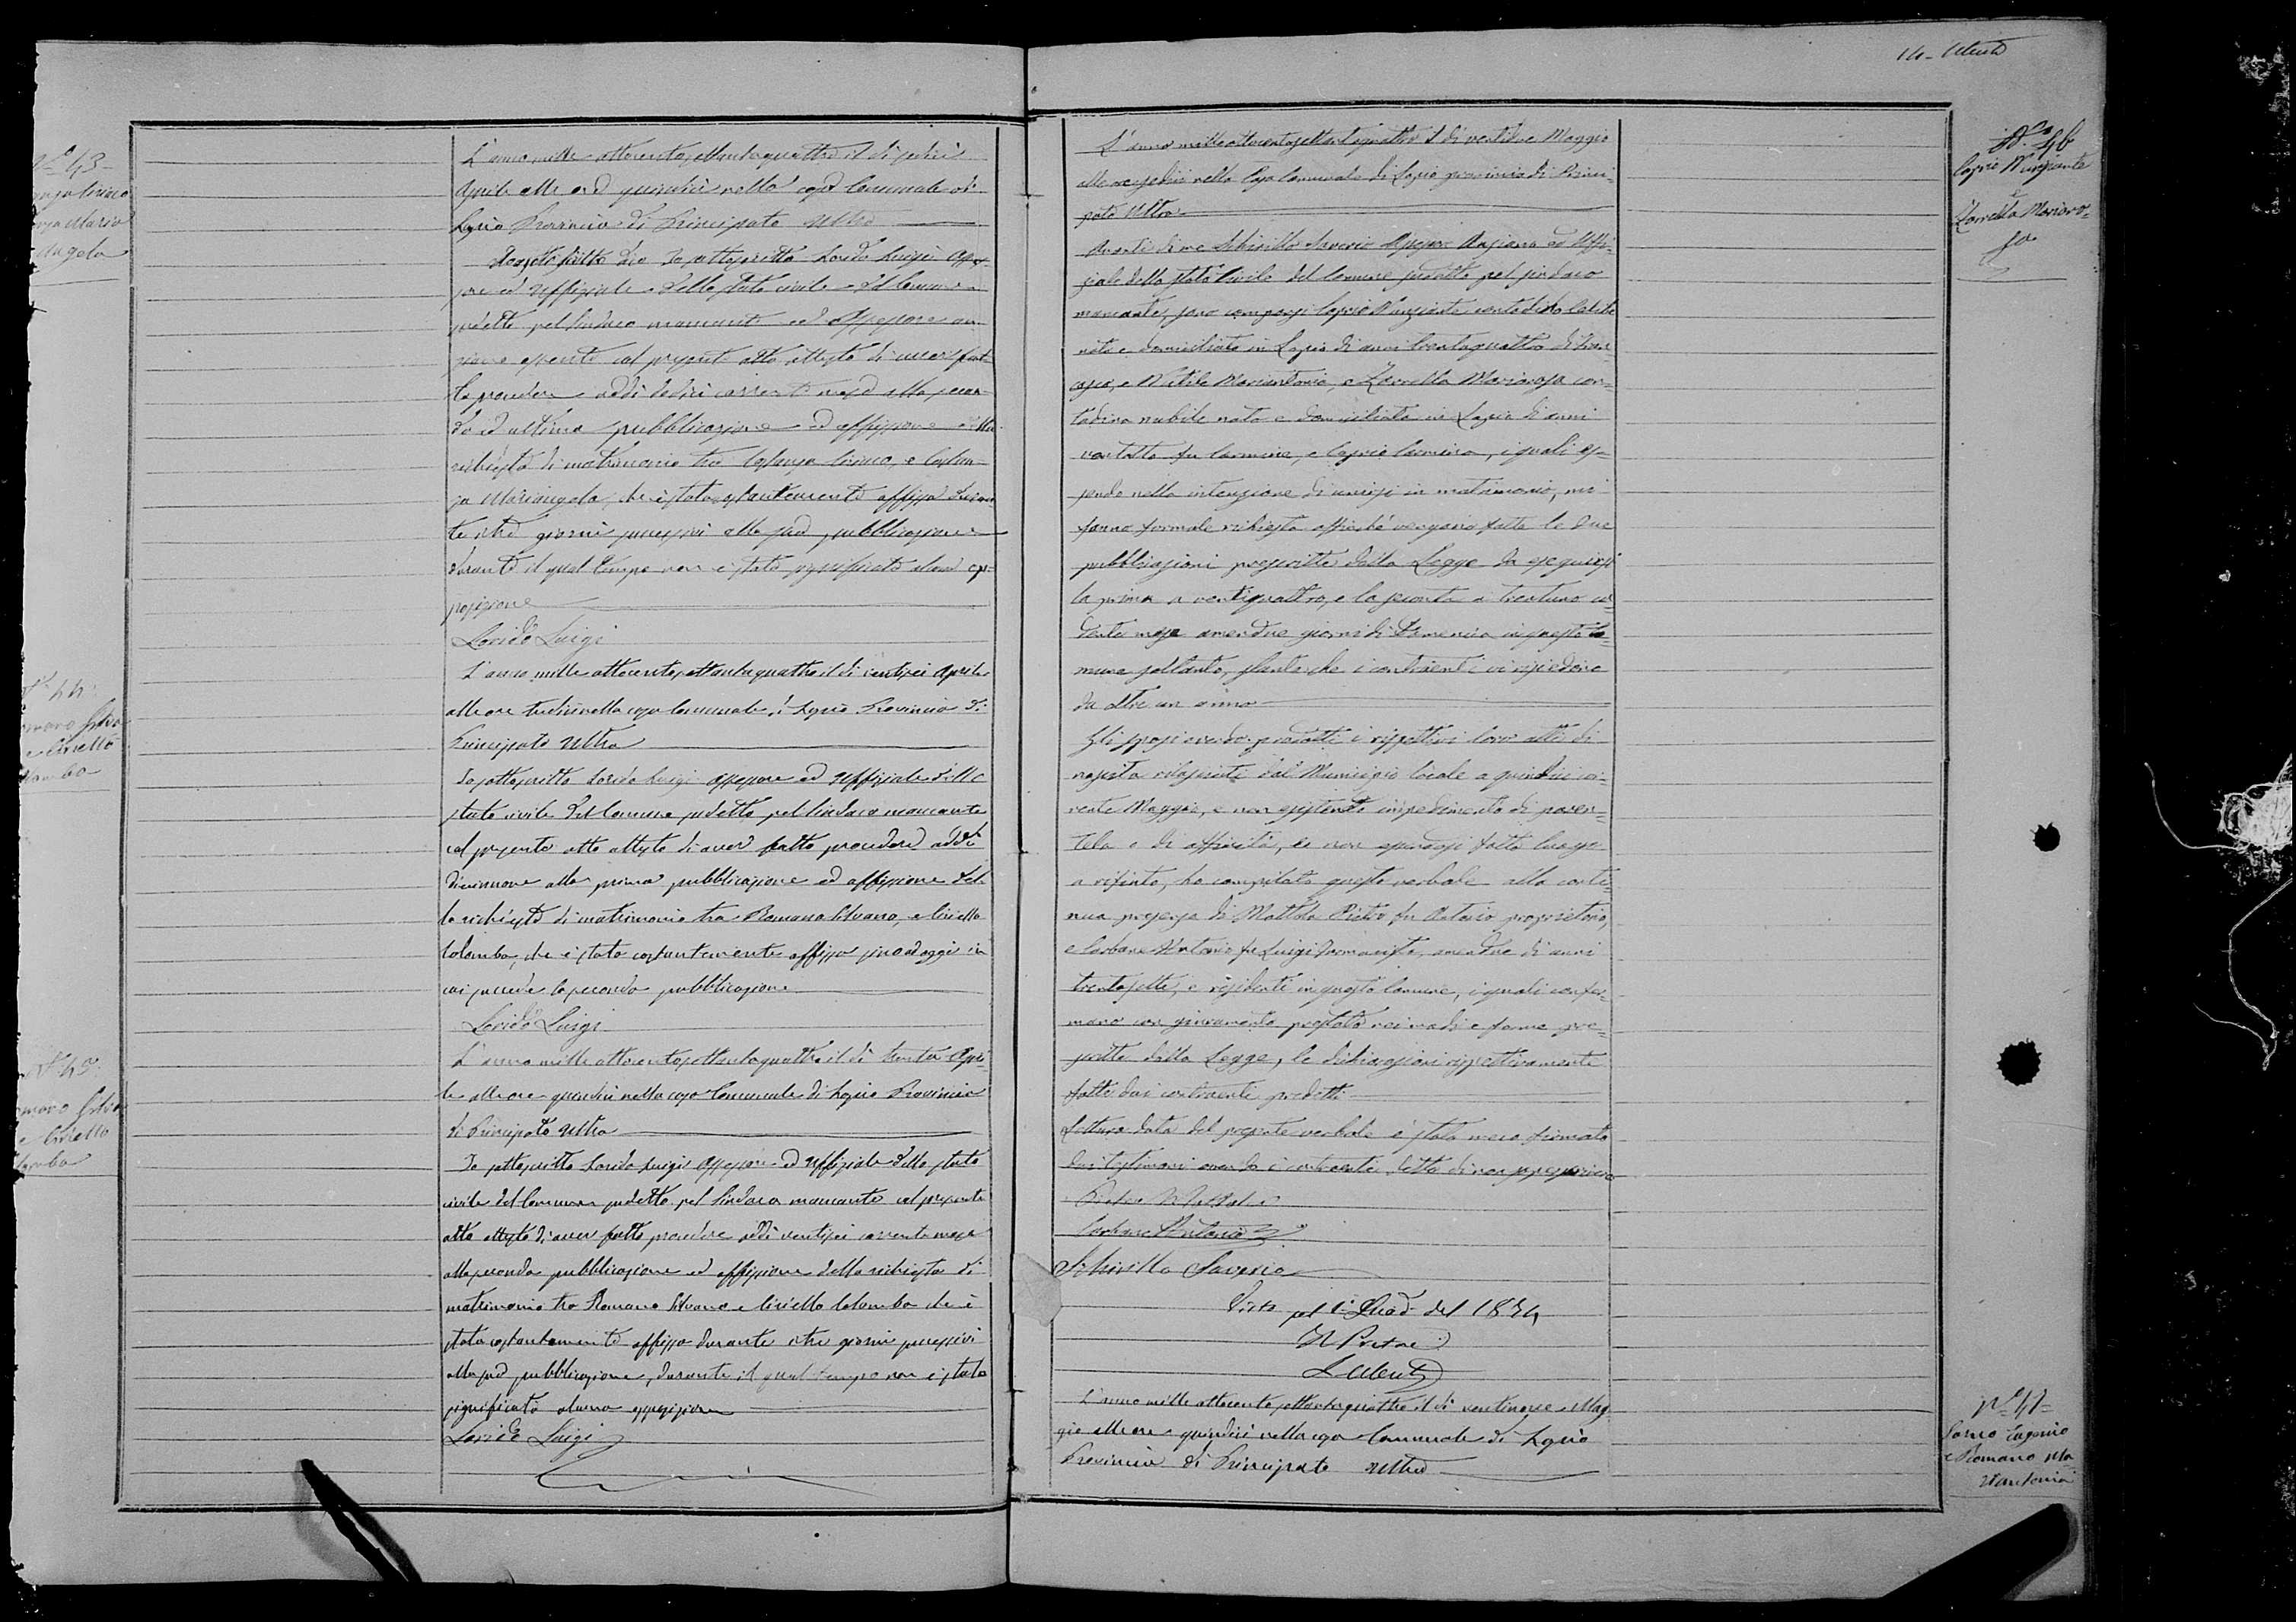 N.° 43
Mario
Angela
L'anno mille ottocento settantaquattro il di sedici
Aprile alle ore quindici nella casa Comunale di
Lapio Provincia di Principato Ultra
Io sottoscritto Lorido Luigi Asses-
sore ed Uffiziale dello stato civile del Comune
sudetto pel Sindaco mancante ed Assessore an-
ziano assente col presente atto attesto di aver fat-
to procedere addì dodici corrente mese alla secon-
da ed ultima pubblicazione ed affissione della
richiesta di matrimonio tra Costanza Ciriaco, e Costan-
za Mariangela, che è stata costantemente affissa duran-
te tre giorni successivi alla sud. pubblicazione
durante il qual tempo non è stata significata alcuna op-
posizione
Lorido Luigi
N.° 44
Romano Silva
e Ciriello
Colomba
L'anno mille ottocento settantaquattro il di ventisei Aprile
alle ore tredici nella casa Comunale di Lapio Provincia di
Principato Ultra
Io sottoscritto Lorido Luigi Assessore ed Uffiziale dello
stato civile del Comune sudetto pel Sindaco mancante
col presente atto attesto di aver fatto procedere addì
diciannove alla prima pubblicazione ed affissione del-
la richiesta di matrimonio tra Romano Silvano, e Ciriello
Colomba, che è stata costantemente affissa sino ad oggi in
cui succede la seconda pubblicazione
Lorido Luigi
N.° 45
Romano Silva
e Ciriello
Colomba
L'anno mille ottocento settantaquattro il di trenta Apri-
le alle ore quindici nella casa Comunale di Lapio Provincia
di Principato Ultra
Io sottoscritto Lorido Luigi Assessore ed Uffiziale dello stato
civile del Comune sudetto pel Sindaco mancante col presente
atto attesto di aver fatto procedere addì ventisei corrente mese
alla seconda pubblicazione ed affissione della richiesta di
matrimonio tra Romano Silvano e Ciriello Colomba che è
stata costantemente affissa durante tre giorni successivi
alla sud pubblicazione, durante il qual tempo non è stata
significata alcuna opposizione
Lorido Luigi
14
N.° 46
Caprio Nunziante
e
Zarrella Mariaro-
sa
L'anno mille ottocentosettantaquattro il di ventidue Maggio
alle ore sedici nella Casa Comunale di Lapio provincia di Princi-
pato Ultra
Avanti di me Schirillo Saverio Assessore Anziano ed Uffi-
ziale dello stato Civile del Comune sudetto pel sindaco
mancante, sono comparsi Caprio Nunziante contadino Celibe
nato e domiciliato in Lapio di anni trentaquattro di
e Mariantonia e Zarrella Mariarosa con-
tadina nubile nata e domiciliata in Lapio di anni
ventotto fu Carmine, e Caprio Carmina, i quali es-
sendo nella intenzione di unirsi in matrimonio, mi
fanno formale richiesta affinché vengano fatte le due
pubblicazioni prescritte dalla Legge da eseguirsi
la prima a ventiquattro, e la seconda a trentuno an-
dante mese amendue giorni di Domenica in questo Co-
mune soltanto, stante che i contraenti vi risiedono
da oltre un anno
Gli sposi avendo prodotti i rispettivi loro atti di
nascita rilasciati dal Municipio locale a quindici cor-
rente Maggio, e non esistendo impedimento di paren-
tela o di affinità, e non essendosi fatto luogo
a rifiuto, ho compilato questo verbale alla conti-
nua presenza di Mattola Pietro fu Antonio proprietario,
e Carbone Antonio fu Luigi farmacista, amendue di anni
trentasette, e residenti in questo Comune, i quali confer-
mano con giuramento prestato nei modi e forme pre-
scritte dalla Legge, le dichiarazioni rispettivamente
fatte dai contraenti predetti
Lettura data del presente verbale è stato meco firmato
dai testimoni avendo i contraenti detto di non saper scrivere
Pietro
Carbone Antonio
Schirillo Saverio
Visto pel 1° Quad del 1874
Il Pretore
N.° 47
Eugenio
e Romano Ma
Antonia
L'anno mille ottocento settantaquattro il di ventinove Mag
gio alle ore quindici nella casa Comunale di Lapio
Provincia di Principato Ultra